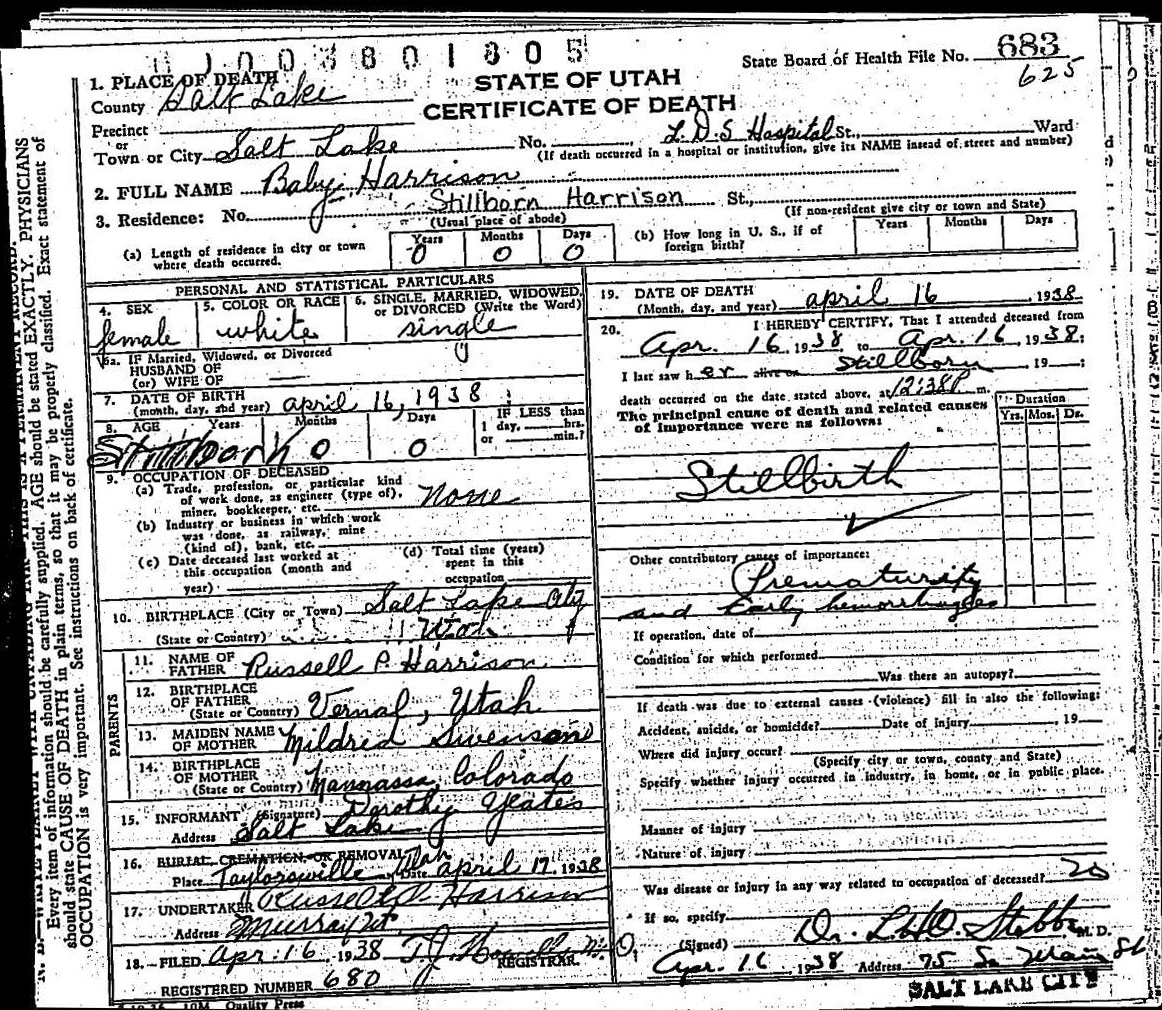 1003801805
State Board of Health File No. 683
625
STATE OF UTAH
CERTIFICATE OF DEATH
1. PLACE OF DEATH
County Salt Lake
Precinct
or
Town or City Salt Lake No. L.D.S Hospital St., Ward
(If death occurred in a hospital or institution, give its NAME instead of street and number)
2. FULL NAME Baby Harrison
Stillborn Harrison
3. Residence: No. St.,
(Usual place of abode) (If non-resident give city or town and State)
(a) Length of residence in city or town where death occurred. Years 0 Months 0 Days 0
(b) How long in U. S., if of foreign birth? Years Months Days
PERSONAL AND STATISTICAL PARTICULARS
4. SEX female
5. COLOR OR RACE white
6. SINGLE, MARRIED, WIDOWED, or DIVORCED (Write the Word) single
6a. IF Married, Widowed, or Divorced
HUSBAND OF
(or) WIFE OF
7. DATE OF BIRTH
(month, day, and year) april 16, 1938
8. AGE Years Months Days IF LESS than
1 day, hrs.
or min.?
0 0
9. OCCUPATION OF DECEASED
(a) Trade, profession, or particular kind
of work done, as engineer (type of),
miner, bookkeeper, etc. none
(b) Industry or business in which work
was done, as railway, mine
(kind of), bank, etc.
(c) Date deceased last worked at
this occupation (month and
year)
(d) Total time (years)
spent in this
occupation
10. BIRTHPLACE (City or Town) Salt Lake City
(State or Country) Utah
PARENTS
11. NAME OF FATHER Russell P. Harrison
12. BIRTHPLACE OF FATHER
(State or Country) Vernal, Utah
13. MAIDEN NAME OF MOTHER Mildred Swenson
14. BIRTHPLACE OF MOTHER
(State or Country) Mannassa, Colorado
15. INFORMANT (Signature) Dorothy Yeates
Address Salt Lake
16. BURIAL, CREMATION, OR REMOVAL
Place Taylorsville Utah Date april 17 1938
17. UNDERTAKER Russell P. Harrison
Address Murray Ut.
18. FILED Apr. 16, 1938 T.J.
REGISTRAR
REGISTERED NUMBER 680
10M Quality Press
19. DATE OF DEATH
(Month, day, and year) april 16, 1938
20. I HEREBY CERTIFY, That I attended deceased from
Apr. 16, 1938 to Apr. 16, 1938;
I last saw her alive on Stillborn, 19 ;
death occurred on the date stated above, at 12:38P m.
The principal cause of death and related causes
of importance were as follows:
Duration
Yrs. Mos. Ds.
Stillbirth
Other contributory causes of importance:
Prematurity
and Early hemorrhages
If operation, date of
Condition for which performed
Was there an autopsy?
If death was due to external causes (violence) fill in also the following:
Accident, suicide, or homicide? Date of injury , 19
Where did injury occur?
(Specify city or town, county and State)
Specify whether injury occurred in industry, in home, or in public place.
Manner of injury
Nature of injury
Was disease or injury in any way related to occupation of deceased? no
If so, specify
(Signed) Dr. L.H.O. Stobbe M. D.
Apr. 16, 1938 Address 75 So Main St
SALT LAKE CITY
N. B.—WRITE PLAINLY WITH UNFADING INK—THIS IS A PERMANENT RECORD.
Every item of information should be carefully supplied. AGE should be stated EXACTLY. PHYSICIANS
should state CAUSE OF DEATH in plain terms, so that it may be properly classified. Exact statement of
OCCUPATION is very important. See instructions on back of certificate.